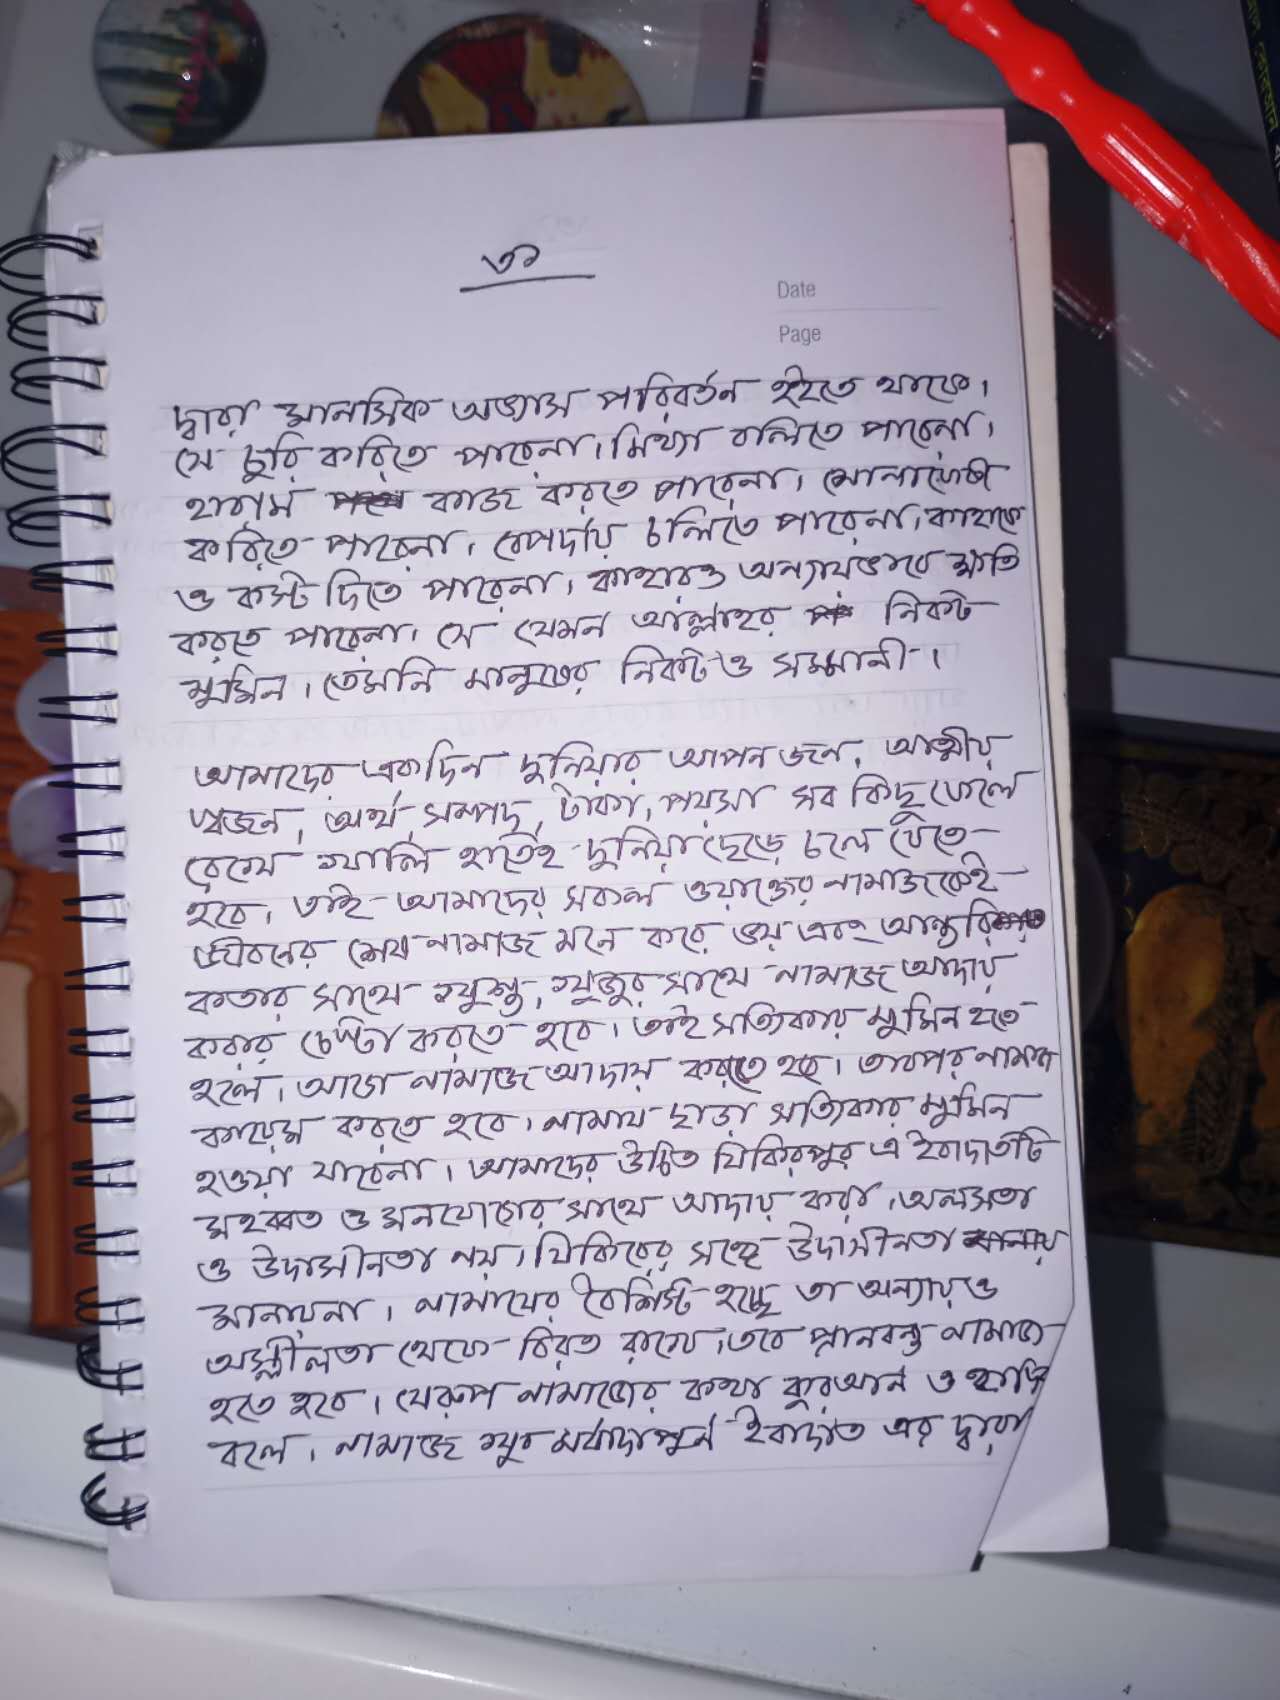 ৩১
Date
Page
দ্বারা মানসিক অভ্যাস পরিবর্তন হইতে থাকে।
সে চুরি করিতে পারেনা। মিথ্যা বলিতে পারেনা।
হারাম কাজ করতে পারেনা।
করিতে পারেনা। বেপর্দায় চলিতে পারেনা। কাহাকে
ও কস্ট দিতে পারেনা। কাহারও অন্যায়ভাবে ক্ষতি
করতে পারেনা। সে যেমন আল্লাহর নিকট
মুমিন। তেমনি মানুষের নিকট ও সম্মানী।
আমাদের একদিন দুনিয়ার আপন জন, আত্মীয়
স্বজন, অর্থ, সম্পদ, টাকা, পয়সা সব কিছু ফেলে
রেখে খালি হাতেই দুনিয়া ছেড়ে চলে যেতে
হবে। তাই আমাদের সকল ওয়াক্তের নামাজকেই
জীবনের শেষ নামাজ মনে করে ভয় এবং আন্তরি
কতার সাথে খুশু, খুজুর সাথে নামাজ আদায়
করার চেষ্টা করতে হবে। তাই সত্যিকার মুমিন হতে
হলে। আগে নামাজ আদায় করতে হবে। তারপর নামাজ
কায়েম করতে হবে। নামায ছাড়া সত্যিকার মুমিন
হওয়া যাবেনা। আমাদের উচিত যিকিরপুর এ ইবাদতটি
মহব্বত ও মনযোগের সাথে আদায় করা। অলসতা
ও উদাসীনতা নয়। যিকিরের সঙ্গে উদাসীনতা
মানায়না। নামাযের বৈশিস্ট হচ্ছে তা অন্যায় ও
অশ্লীলতা থেকে বিরত রাখে। তবে প্রানবন্ত নামাজ
হতে হবে। যেরুপ নামাজের কথা কুরআন ও হাদিস
বলে। নামাজ খুব মর্যাদাপুর্ন ইবাদাত এর দ্বারা